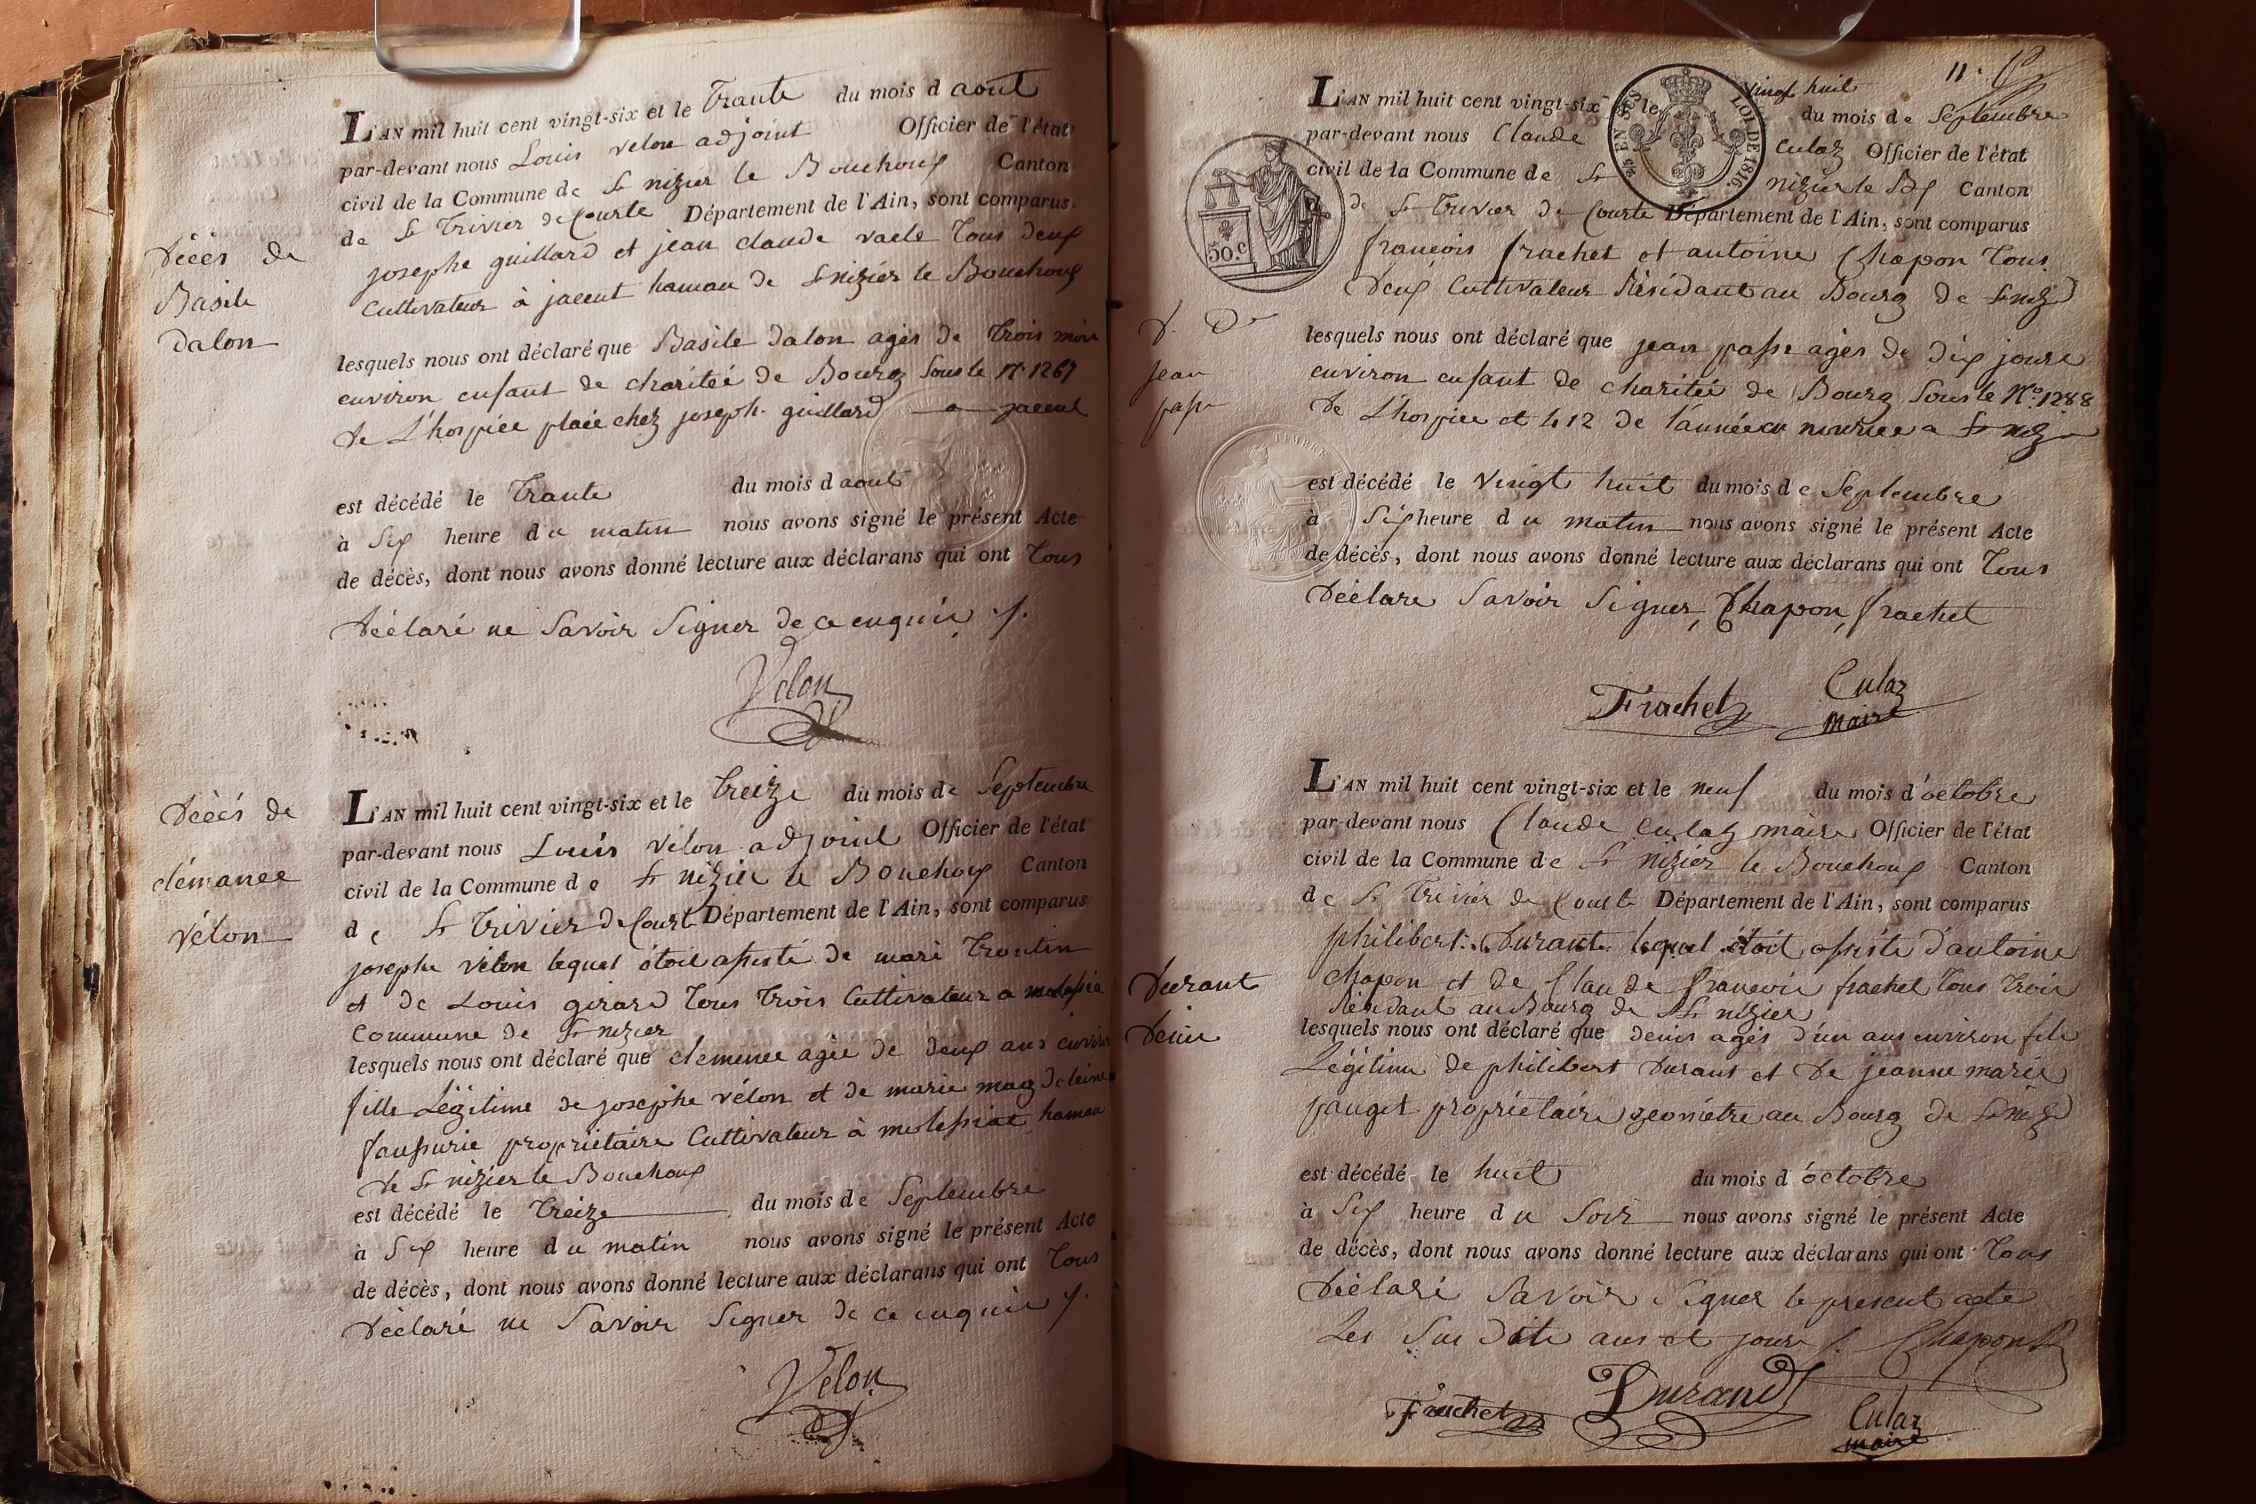 L'AN mil huit cent vingt-six et le Trante du mois d aout
par-devant nous Louis velon adjoint Officier de l'état
civil de la Commune de St nizier le Bouchoux Canton
de St Trivier de Courte Département de l'Ain, sont comparus
josephe guillard et jean claude vaele Tous deux
Cultivateur à jacent hamau de St nizier le Bouchoux
Décès de
Basile
dalon
lesquels nous ont déclaré que Basile dalon agés de Trois mois
environ enfant de charitéé de Bourg Sous le N° 1267
de L'hospice placé chez joseph guillard a jacent
est décédé le Trante du mois d aout
à Six heure du matin nous avons signé le présent Acte
de décès, dont nous avons donné lecture aux déclarans qui ont Tous
Déclaré ne Savoir Signer de ce enquis
Velon
L'AN mil huit cent vingt-six et le Treize du mois de Septembre
par-devant nous Louis vélon adjoint Officier de l'état
civil de la Commune de St nizier le Bouchoux Canton
de St Trivier de Court Département de l'Ain, sont comparus
Décés de
clémance
vélon
josephe vélon lequel étoit assisté de mari Trontin
et de Louis girard Tous Trois Cultivateur a molessia
Commune de St nizier
lesquels nous ont déclaré que clemence agée de deux ans environ
fille Légitime de josephe vélon et de marie magdeleine
faussurie propriétaire Cultivateur à molessiat hamau
de St nizier le Bouchoux
est décédé le Treize du mois de Septembre
à Six heure du matin nous avons signé le présent Acte
de décès, dont nous avons donné lecture aux déclarans qui ont Tous
Déclaré ne Savoir Signer de ce enquis
Velon
11.
L'AN mil huit cent vingt-six et le vingt huit du mois de Septembre
par-devant nous Claude Culaz Officier de l'état
civil de la Commune de St nizier le Bx Canton
de St Trivier de Courte Département de l'Ain, sont comparus
EN SUS
LOI DE 1816.
50.c
francois frachet et antoine Chapon Tous
Deux Cultivateur Résidant au Bourg de St niz
D. De
jean
passe
lesquels nous ont déclaré que jean passe agés de dix jours
environ enfant de charitéé de Bourg Sous le N° 1288
de L'hospice et 412 de l'année en nourice a St niz
est décédé le vingt huit du mois de Septembre
à Six heure du matin nous avons signé le présent Acte
de décès, dont nous avons donné lecture aux déclarans qui ont Tous
Déclare Savoir Signer, Chapon, frachet
Frachet Culaz
maire
L'AN mil huit cent vingt-six et le neuf du mois d'octobre
par-devant nous Claude Culaz maire Officier de l'état
civil de la Commune de St nizier le Bouchoux Canton
de St Trivier de Courte Département de l'Ain, sont comparus
philibert Durant lequel étoit assisté d'antoine
chapon et de Claude francois frachet Tous Trois
Résidant au Bourg de St nizier
Durant
Denis
lesquels nous ont déclaré que denis agés d'un ans environ fils
Légitime de philibert Durant et de jeanne marie
pauget propriétaire géométre au Bourg de St niz
est décédé le huit du mois d'octobre
à Six heure du Soir nous avons signé le présent Acte
de décès, dont nous avons donné lecture aux déclarans qui ont Tous
Déclaré Savoir Signer le present acte
Les Sus dite ans et jour Chapon
Frachet Durand Culaz
maire